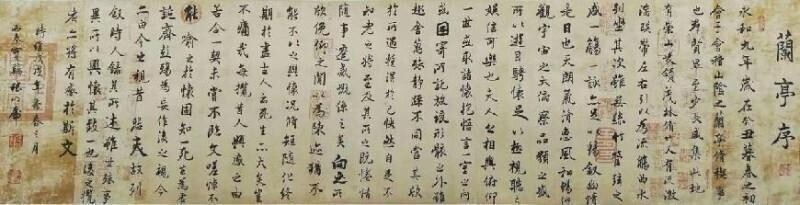 蘭亭序
永和九年歲在癸丑暮春之初
會于會稽山陰之蘭亭脩禊事
也群賢畢至少長咸集此地
有崇山峻領茂林脩竹又有清流激
湍暎帶左右引以為流觴曲水
列坐其次雖無絲竹管弦之
盛一觴一詠亦足以暢敘幽情
是日也天朗氣清惠風和暢仰
觀宇宙之大俯察品類之盛
所以遊目騁懷足以極視聽之
娛信可樂也夫人之相與俯仰
一世或取諸懷抱悟言一室之內
或因寄所託放浪形骸之外雖
趣舍萬殊靜躁不同當其欣
於所遇蹔得於己怏然自足不
知老之將至及其所之既惓情
隨事遷感慨係之矣向之所
欣俛仰之閒以為陳迹猶不
能不以之興懷況脩短隨化終
期於盡古人云死生亦大矣豈
不痛哉每攬昔人興感之由
若合一契未嘗不臨文嗟悼不
能喻之於懷固知一死生為虛
誕齊彭殤為妄作後之視今
亦由今之視昔悲夫故列
敘時人錄其所述雖世殊事
異所以興懷其致一也後之攬
者亦將有感於斯文